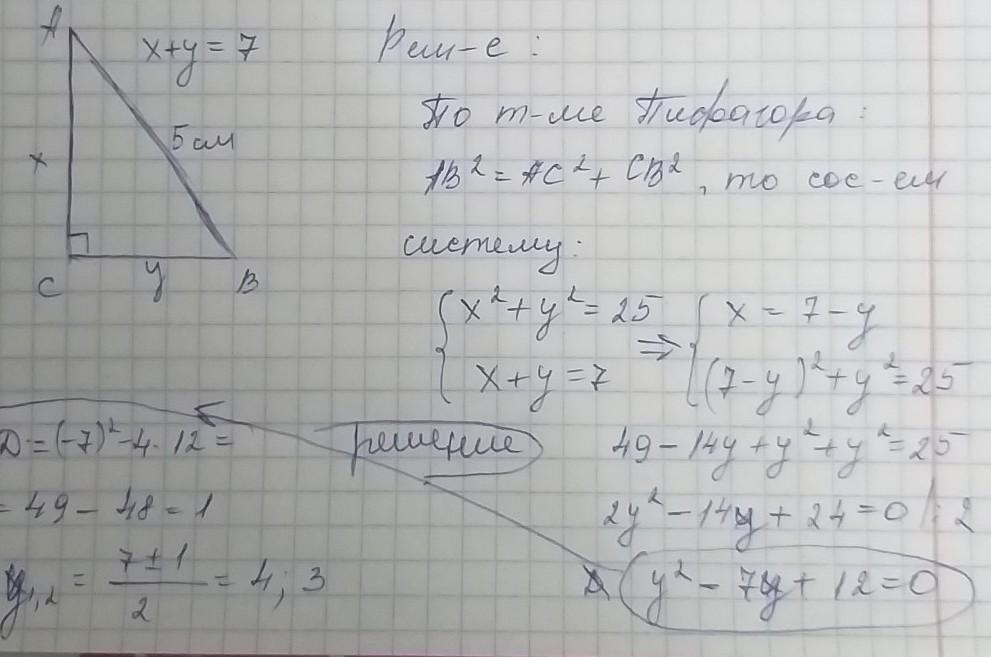 A
x+y=7
5 см
x
C
y
B
Реш-е:
По т-ме Пифагора:
AB²=AC²+CB², то сос-ем
систему:
{x²+y²=25
x+y=7
⇒ {x=7-y
(7-y)²+y²=25
49-14y+y²+y²=25
2y²-14y+24=0 |:2
y²-7y+12=0
решение
D=(-7)²-4·12=
=49-48=1
y₁,₂=(7±1)/2=4; 3